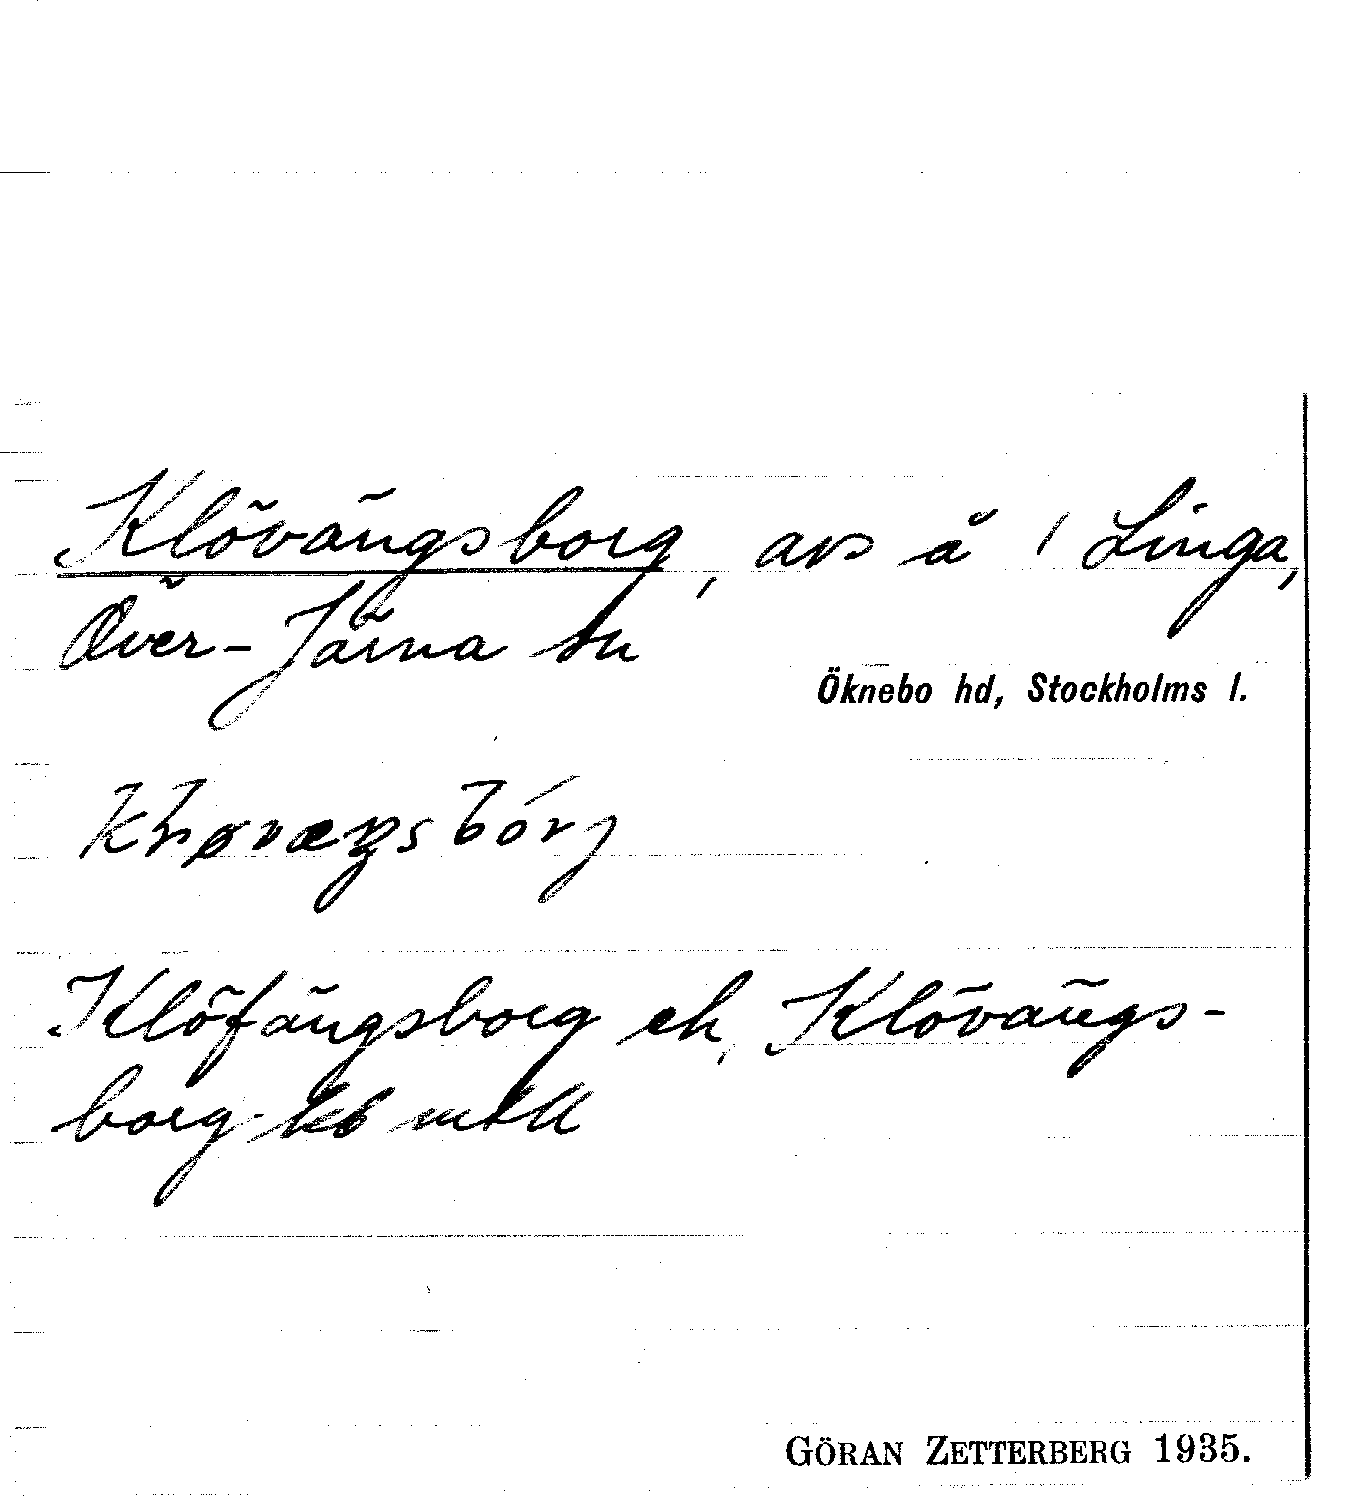 Klövängsborg, avs å 1 Linga,
Över-Järna sn
Öknebo hd, Stockholms l.
Klöfängsborg ek, Klövängs-
borg kb mtll
GÖRAN ZETTERBERG 1935.